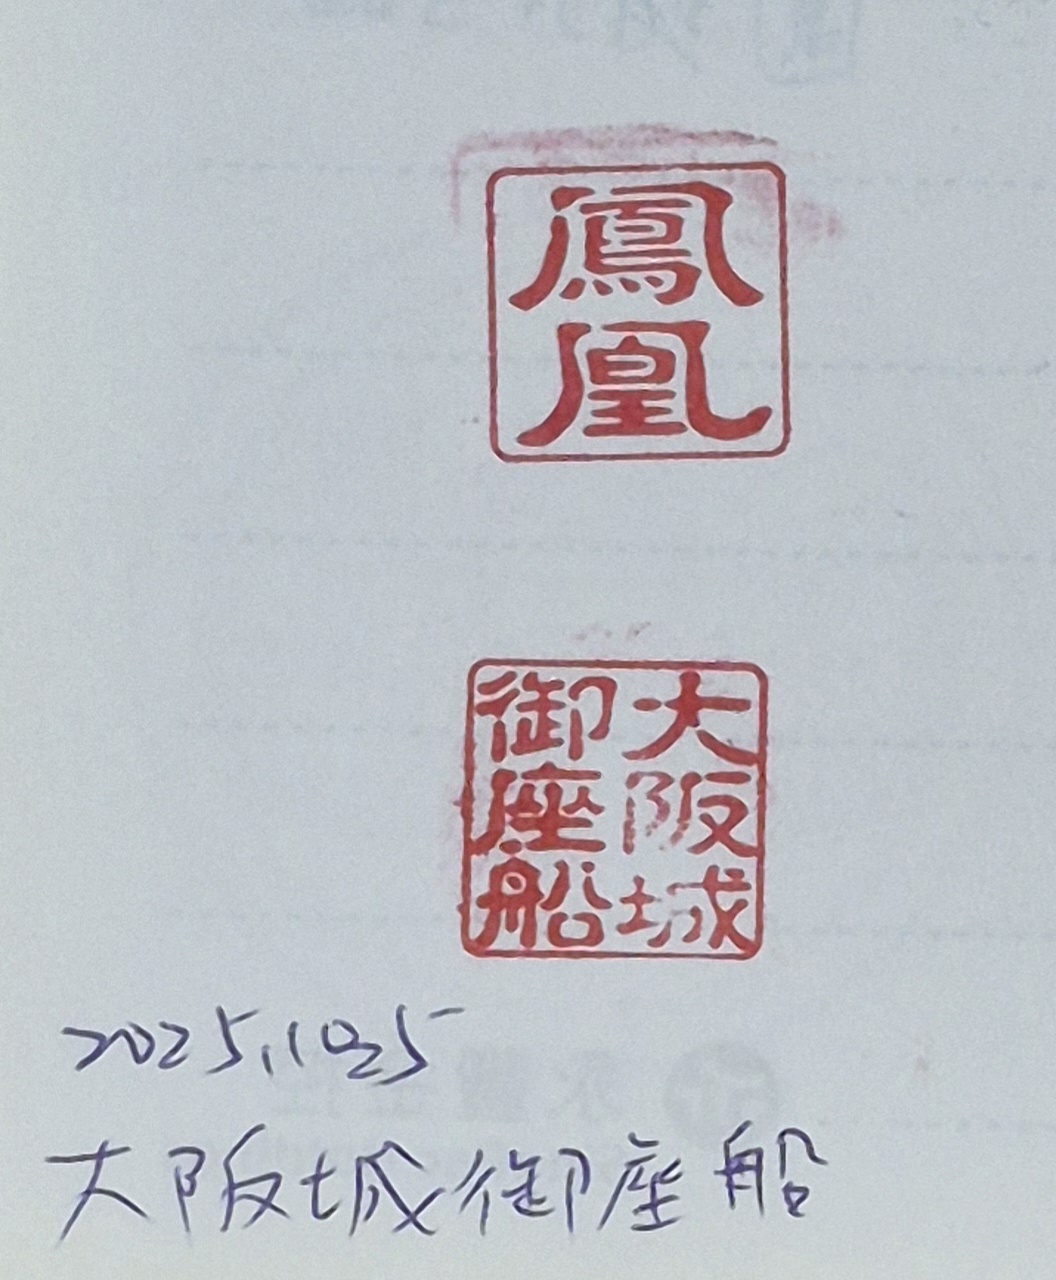 鳳
凰
大阪城
御座船
2025.10.25
大阪城御座船